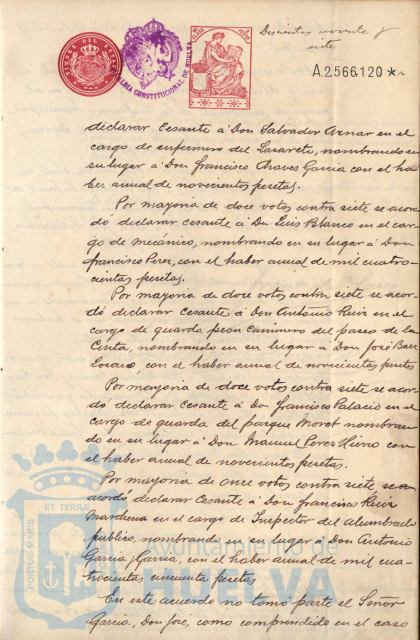 Doscientos noventa y
siete
ALCALDIA CONSTITUCIONAL DE HUELVA
A.2566.120 *
declarar cesante á Don Salvador Aznar en el
cargo de enfermero del Lazareto, nombrando en
su lugar á Don Francisco Chaves Garcia con el ha-
ber anual de novecientas pesetas.
Por mayoria de doce votos contra siete se acor-
dó declarar cesante á Don Luis Blanco en el car-
go de mecánico, nombrando en su lugar á Don
Francisco Perez, con el haber anual de mil cuatro-
cientas pesetas.
Por mayoria de doce votos contra siete se acor-
dó declarar cesante á Don Antonio Ruiz en el
cargo de guarda peon caminero del paseo de la
Cinta, nombrando en su lugar á Don José Baez
Lozano, con el haber anual de novecientas pesetas
Por mayoria de doce votos contra siete se acor-
dó declarar cesante á Don Francisco Palacio en el
cargo de guarda del parque Moret nombran-
do en su lugar á Don Manuel Perez Hierro con
el haber anual de novecientas pesetas.
Por mayoria de once votos contra siete se a-
acordó declarar cesante á Don Francisco Ruiz
Marchena en el cargo de Inspector del Alumbrado
publico, nombrando en su lugar á Don Antonio
Garcia y Garcia, con el haber anual de mil cua-
trocientas cincuenta pesetas
En este acuerdo no tomó parte el Señor
Garcia, Don José, como comprendido en el caso
PORTUS MARIS
ET TERRA
Ayuntamiento de
HUELVA